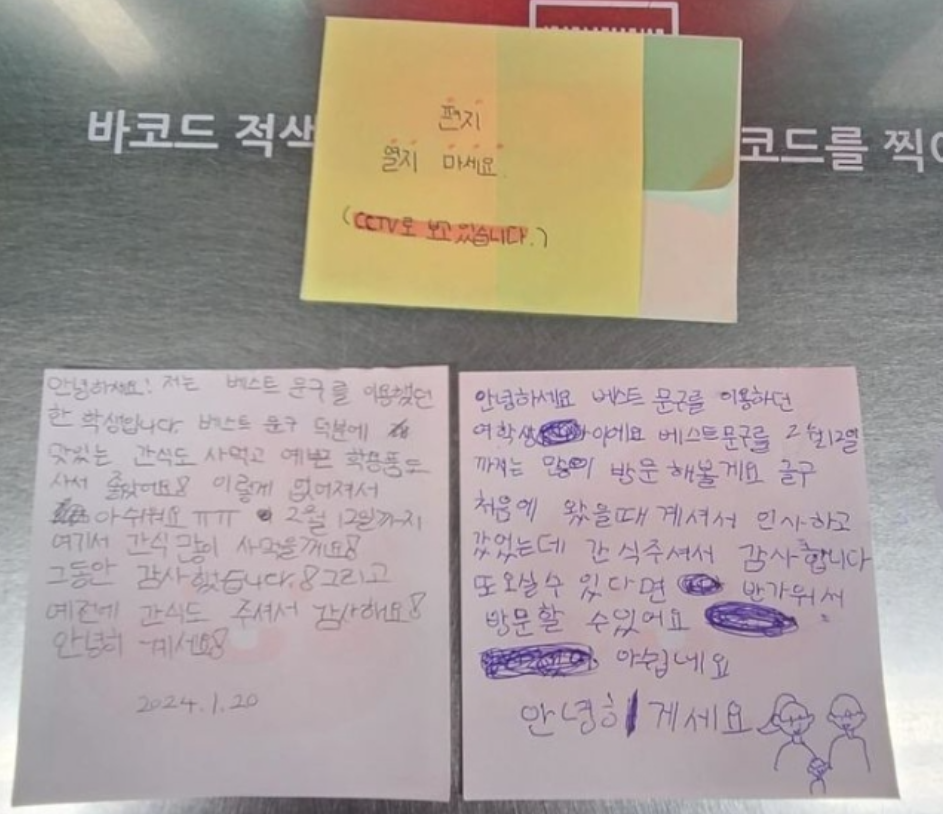 바코드 적색
코드를 찍
편지
열지 마세요.
(CCTV로 보고 있습니다.)
안녕하세요! 저는 베스트 문구를 이용했던
한 학생입니다 베스트 문구 덕분에
맛있는 간식도 사먹고 예쁜 학용품도
사서 좋았어요! 이렇게 없어져서
아쉬워요 ㅠㅠ 2월 12일까지
여기서 간식 많이 사먹을께요!
그동안 감사했습니다.! 그리고
예전에 간식도 주셔서 감사해요!
안녕히 계세요!
2024.1.20
안녕하세요 베스트 문구를 이용하던
여학생이에요 베스트문구를 2월12일
까지는 많이 방문 해볼게요 글구
처음에 왔을때 계셔서 인사하고
갔었는데 간식주셔서 감사합니다
또 오실수 있다면 반가워서
방문할 수있어요
아쉽네요
안녕히 게세요